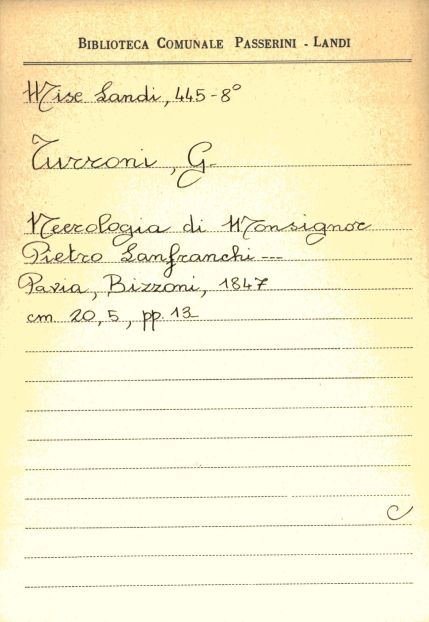 BIBLIOTECA COMUNALE PASSERINI - LANDI
Misc Landi, 445-8°
Turroni, G.
Necrologia di Monsignor
Pietro Lanfranchi ---
Pavia, Bizzoni, 1847
cm. 20,5, pp. 13
C